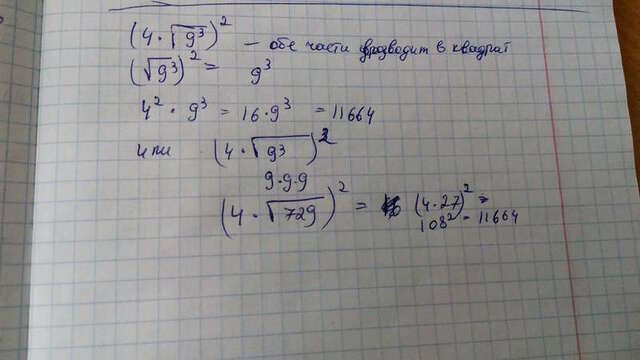 (4·√9³)² – обе части возводит в квадрат
(√9³)² = 9³
4² · 9³ = 16·9³ = 11664
или (4·√9³)²
9·9·9
(4·√729)² = (4·27)² =
108² = 11664